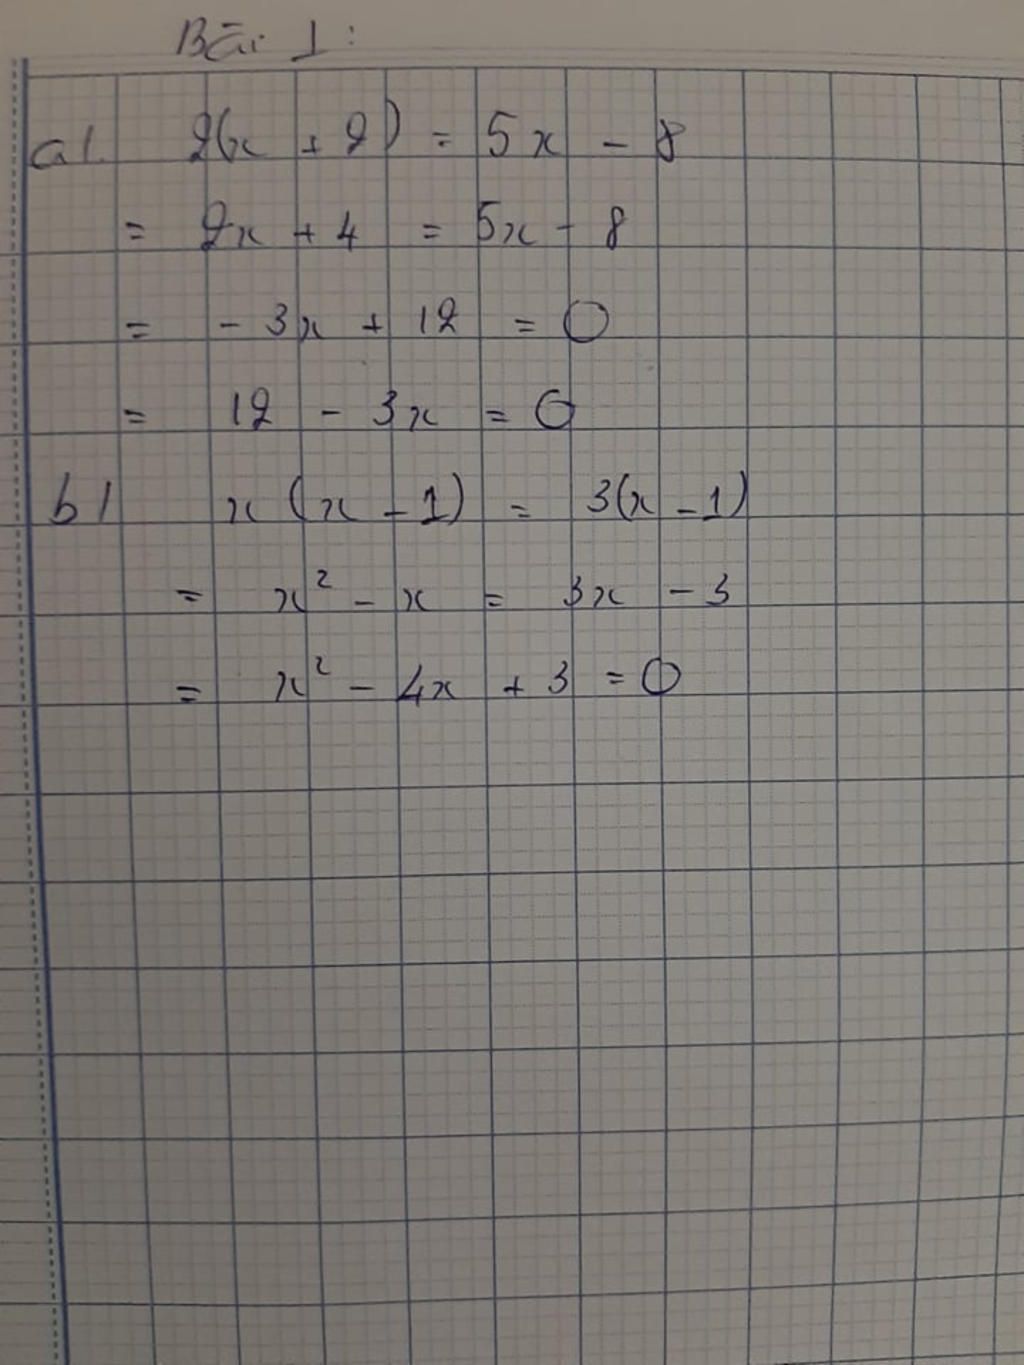 Bài 1:
a/. 2(x + 2) = 5x - 8
= 2x + 4 = 5x - 8
= - 3x + 12 = 0
= 12 - 3x = 0
b/ x(x - 1) = 3(x - 1)
= x² - x = 3x - 3
= x² - 4x + 3 = 0